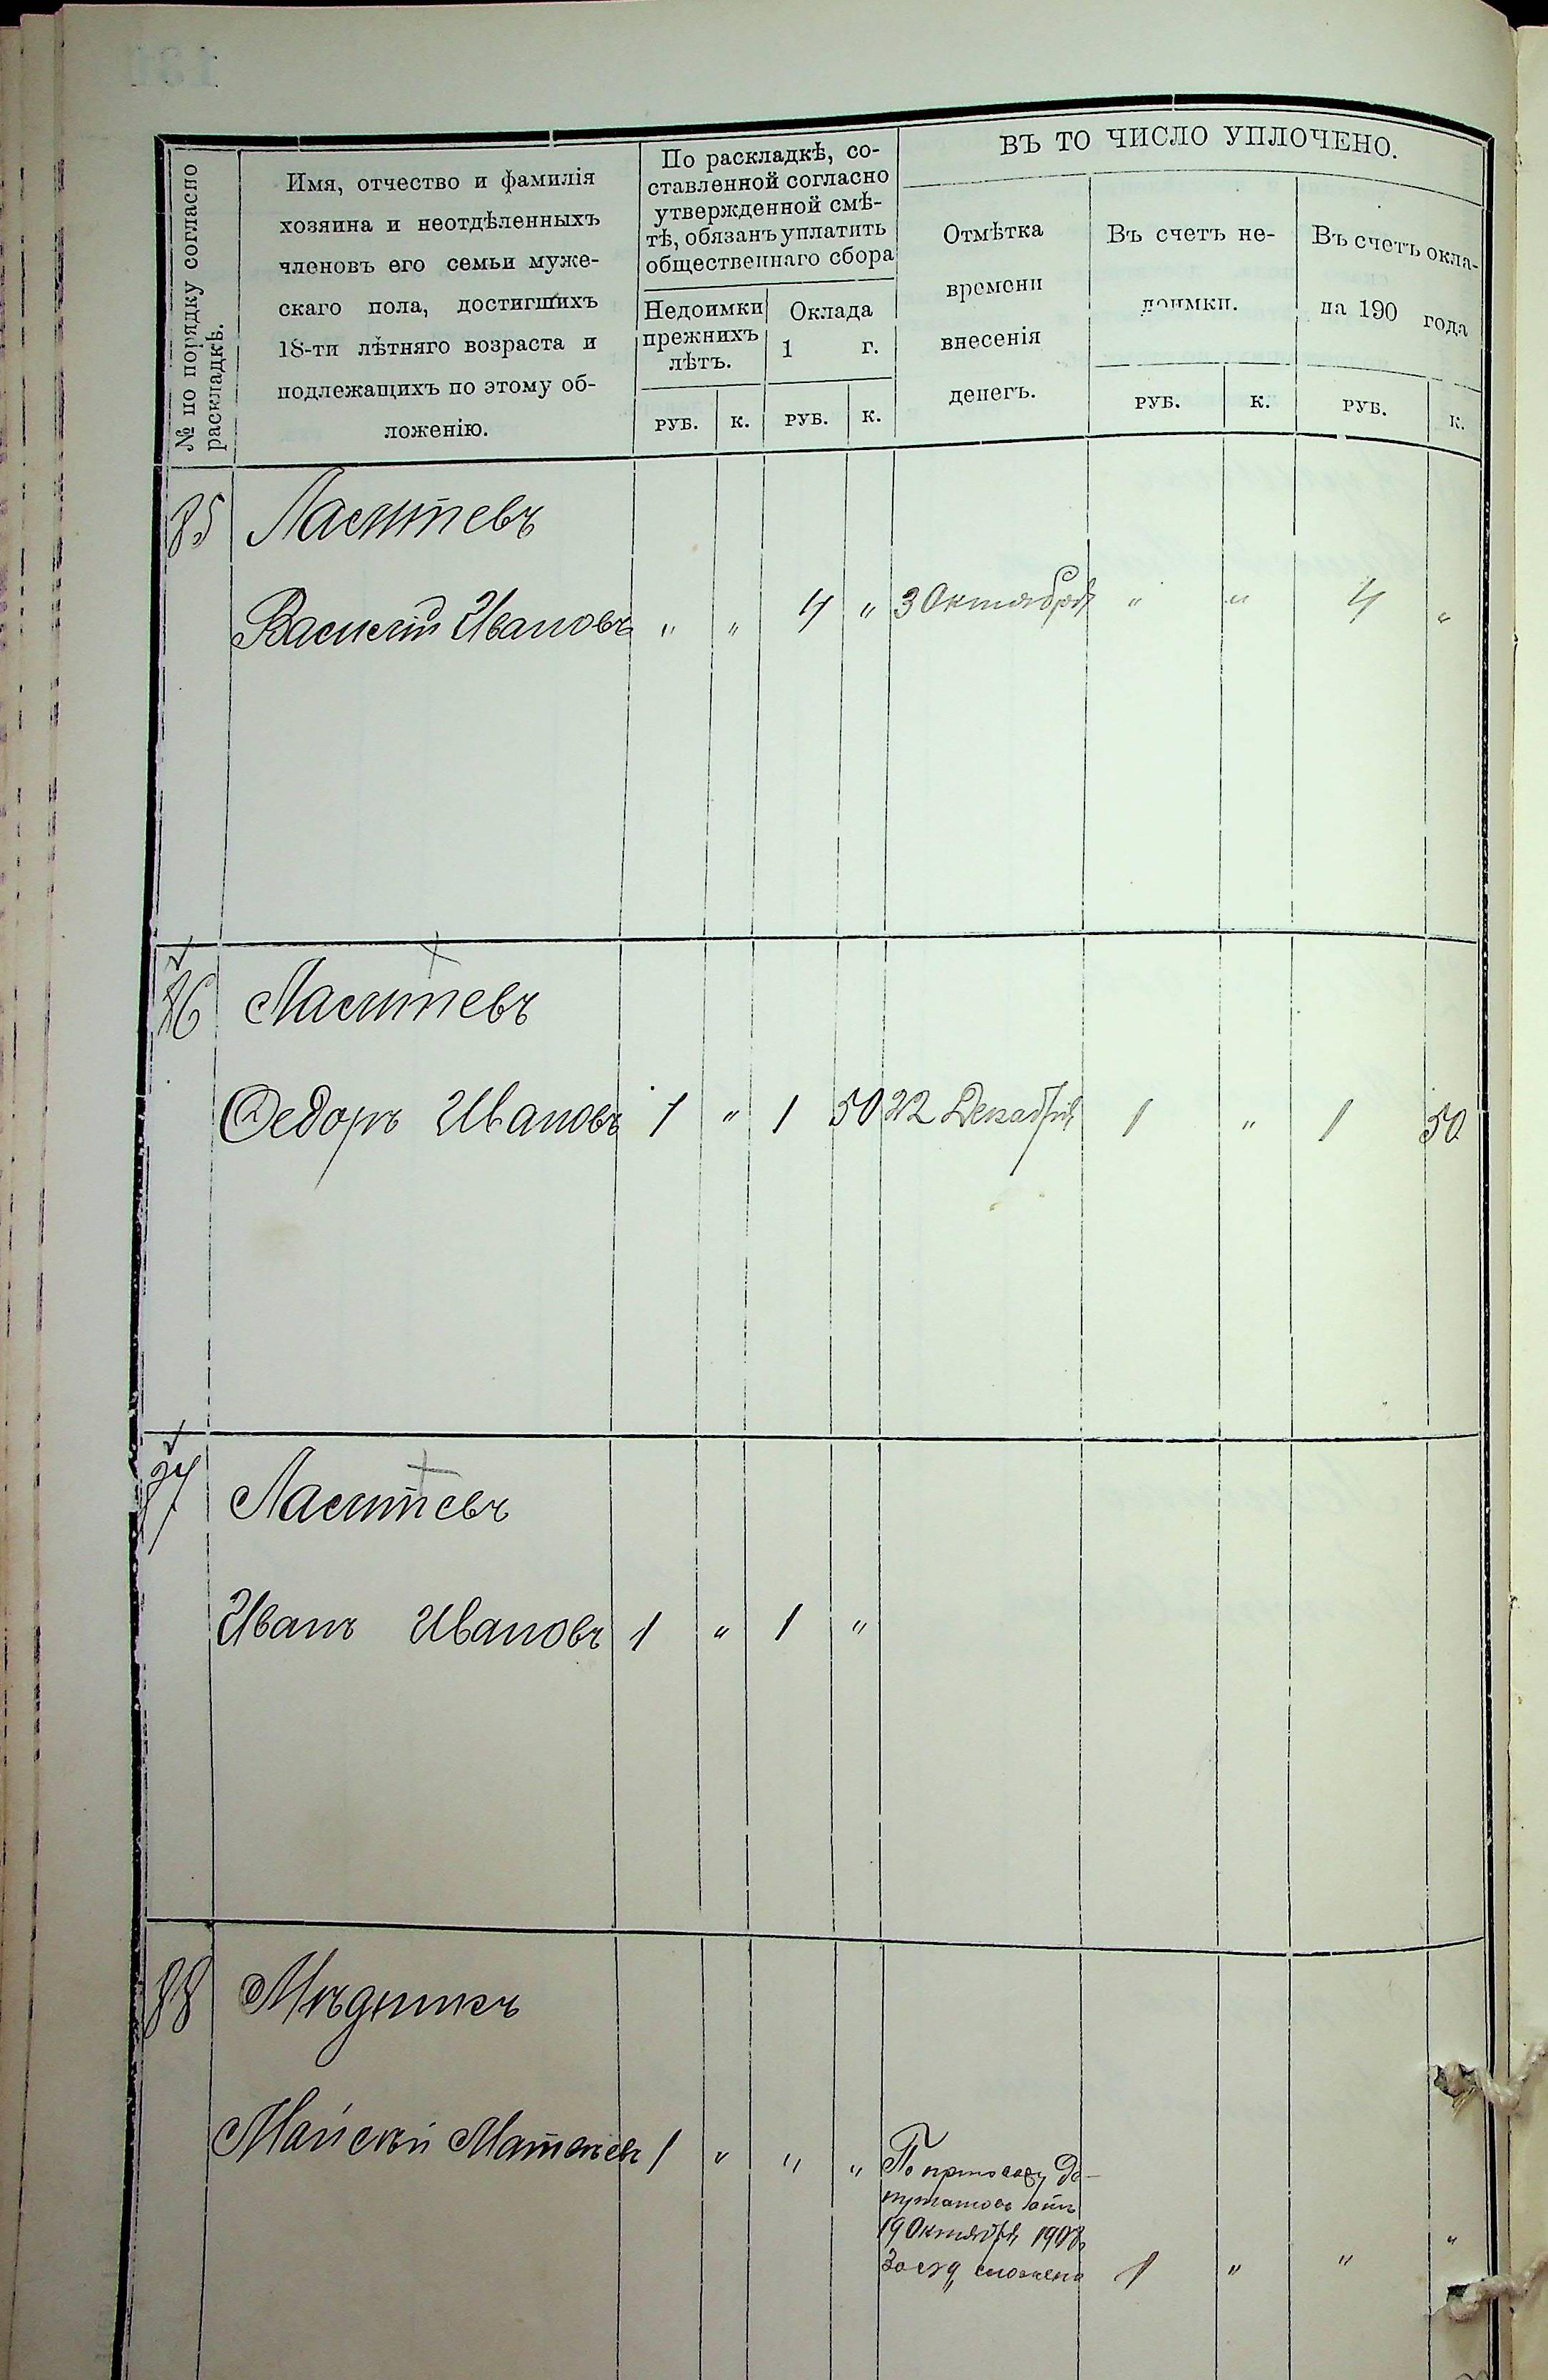 № по порядку согласно
раскладкѣ.
Имя, отчество и фамилія
хозяина и неотдѣленныхъ
членовъ его семьи муже-
скаго пола, достигшихъ
18-ти лѣтняго возраста и
подлежащихъ по этому об-
ложенію.
По раскладкѣ, со-
ставленной согласно
утвержденной смѣ-
тѣ, обязанъ уплатить
общественнаго сбора
Недоимки
прежнихъ
лѣтъ.
Оклада
1 г.
РУБ. К. РУБ. К.
ВЪ ТО ЧИСЛО УПЛОЧЕНО.
Отмѣтка
времени
внесенія
денегъ.
Въ счетъ не-
доимки.
Въ счетъ окла-
на 190 года
РУБ. К. РУБ. К.
85 Лаптевъ
Василій Ивановъ " " 4 " 3 Октября " " 4 "
86 Лаптевъ
Федоръ Ивановъ 1 " 1 50 22 Декабря 1 " 1 50
87 Лаптевъ
Иванъ Ивановъ 1 " 1 "
88 Мѣдникъ
1 " " "
По приговору де-
путатовъ отъ
19 Октября 1908
сложено 1 " " "